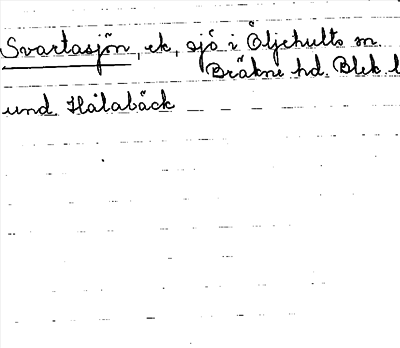 Svartasjön, ek, sjö i Öljehults sn.
Bräkne hd. Blek l
und. Hålabäck